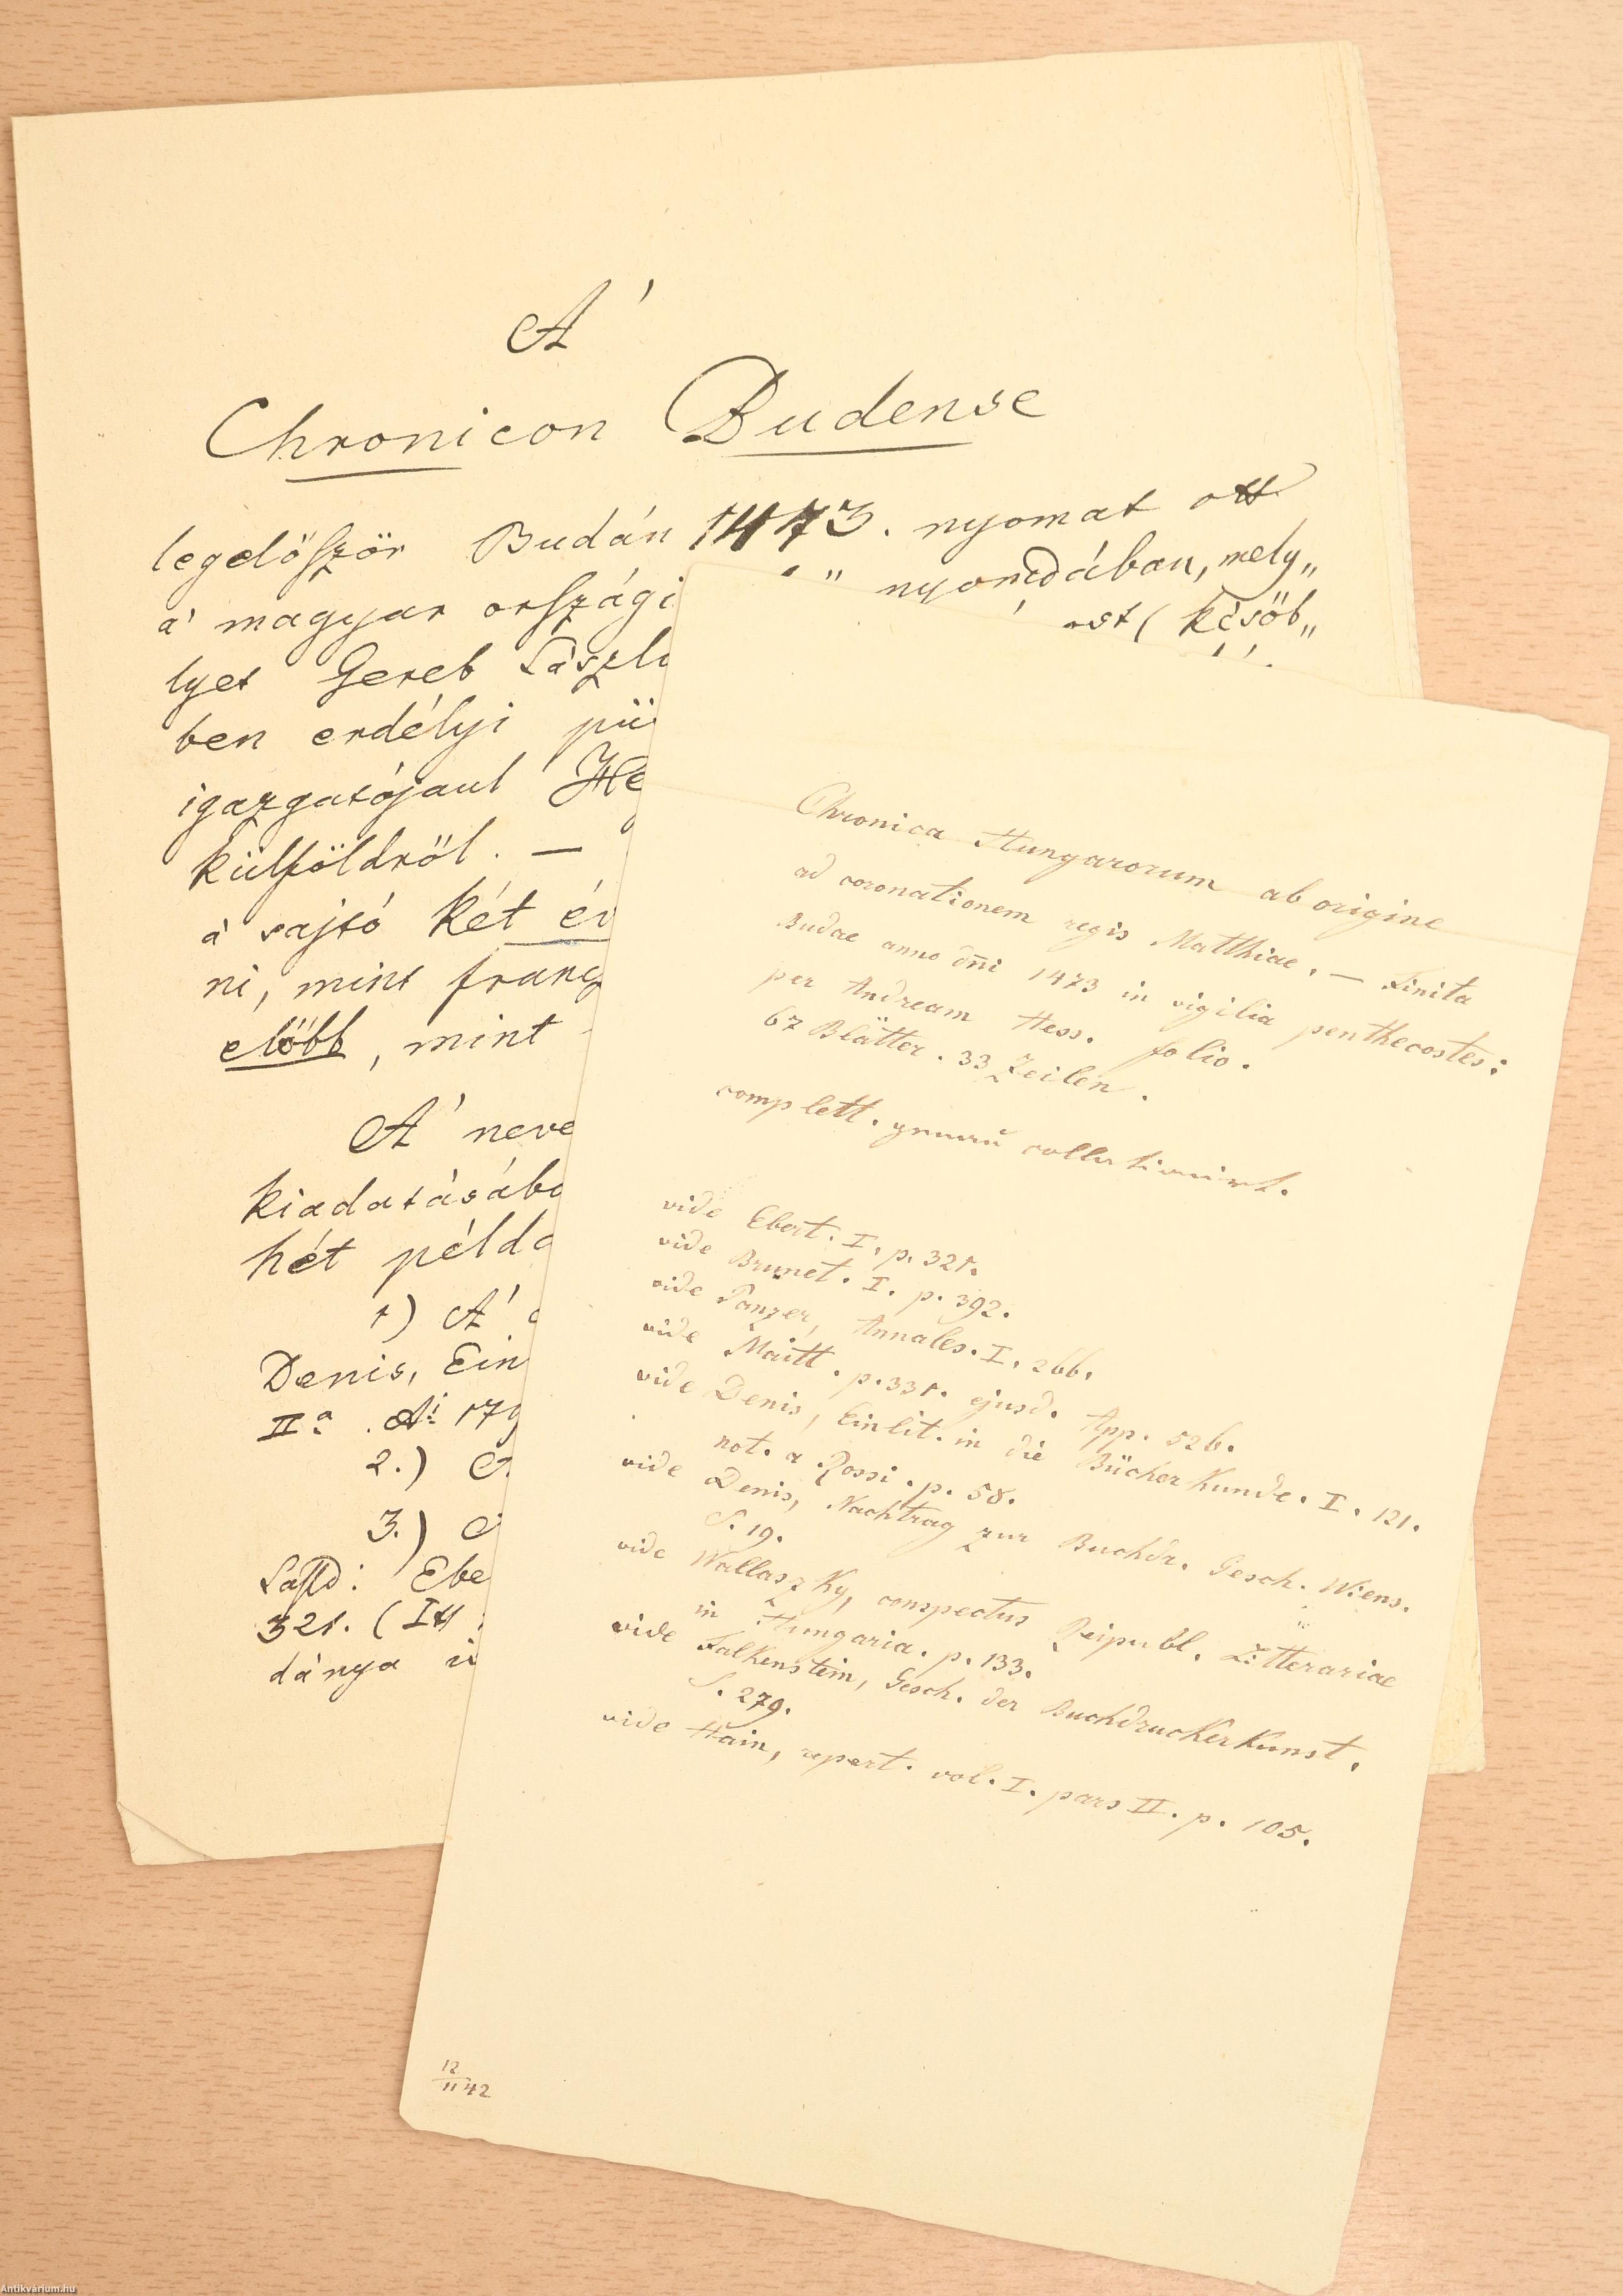 A'
Chronicon Budense
legelöször Budán 1473. nyomat ott
a' magyar országi nyomdában, mely„
lyet Gereb László (késöb„
ben erdélyi
igazgatójaul
külföldröl. —
a' sajtó két
ni, mint
elöbb, mint
A'
kiadatásába
hét
1) A'
Denis,
IIa
2.)
3.)
321.
dánya
Chronica Hungarorum ab origine
ad coronationem regis Matthiae. — Finita
Budae anno dñi 1473 in vigilia penthecostes:
per Andream Hess. folio.
67 Blätter. 33 Zeilen.
complett. genau collationirt.
vide Ebert. I. p. 321.
vide Brunet. I. p. 392.
vide Panzer, Annales. I. 266.
vide Maitt. p. 331. ejusd. App. 526.
vide Denis, Einlit. in die Bücherkunde. I. 121.
not. a Rossi. p. 58.
vide Denis, Nachtrag zur Buchdr. Gesch. Wiens.
S. 19.
vide Wallaszky, conspectus Reipubl. Litterariae
in Hungaria. p. 133.
vide Falkenstein, Gesch. der Buchdruckerkunst.
S. 279.
vide Hain, repert. vol. I. pars II. p. 105.
12/11 42
Antikvárium.hu